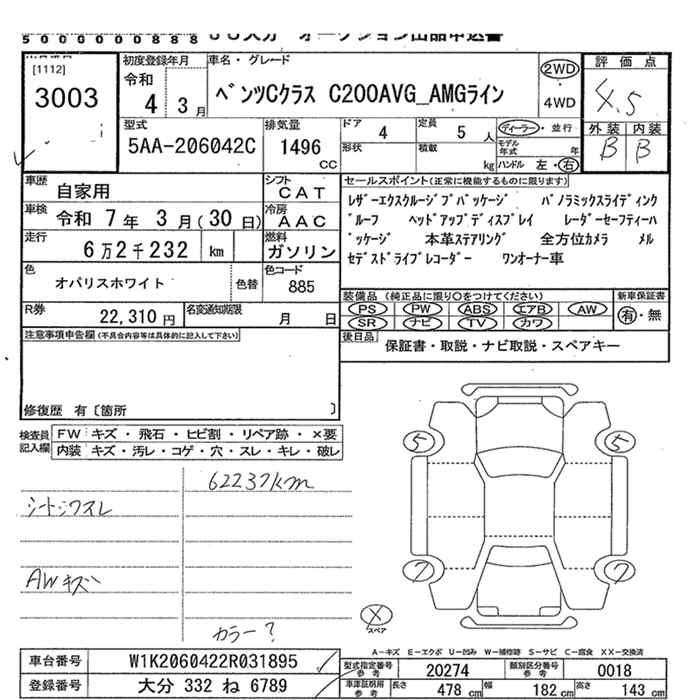 5000000888 US大分 オークション出品申込書
[1112]
3003
初度登録年月
令和
4 3月
車名・グレード
ベンツCクラス C200AVG_AMGライン
2WD
・
4WD
評価点
4.5
外装 内装
B B
型式
5AA-206042C
排気量
1496
CC
ドア 4
定員 5 人
形状
積載 kg
ディーラー・並行
モデル年式 年
ハンドル 左・右
車歴 自家用
シフト CAT
車検 令和 7年 3月(30日)
冷房 AAC
走行 6万2千232 km
燃料 ガソリン
色 オパリスホワイト
色替
色コード 885
R券 22,310円
名変通知期限 月 日
セールスポイント(正常に機能するものに限ります)
レザーエクスクルーシブパッケージ パノラミックスライディング
ルーフ ヘッドアップディスプレイ レーダーセーフティーパ
ッケージ 本革ステアリング 全方位カメラ メル
セデスドライブレコーダー ワンオーナー車
装備品(純正品に限り○をつけてください)
PS PW ABS エアB AW
SR ナビ TV カワ
新車保証書
有・無
後日品 保証書・取説・ナビ取説・スペアキー
注意事項申告欄(不具合内容等は具体的に記入して下さい)
修復歴 有〔箇所 〕
検査員記入欄
FW キズ・飛石・ヒビ割・リペア跡・×要
内装 キズ・汚レ・コゲ・穴・スレ・キレ・破レ
62237km
シートシワスレ
AWキズ
カラー?
5 5
7 7
X
スペア
A-キズ E-エクボ U-凹み W-補修跡 S-サビ C-腐食 XX-交換済
車台番号 W1K2060422R031895
登録番号 大分 332 ね 6789
型式指定番号参考 20274
類別区分番号参考 0018
車庫証明用参考 長さ 478 cm 幅 182 cm 高さ 143 cm